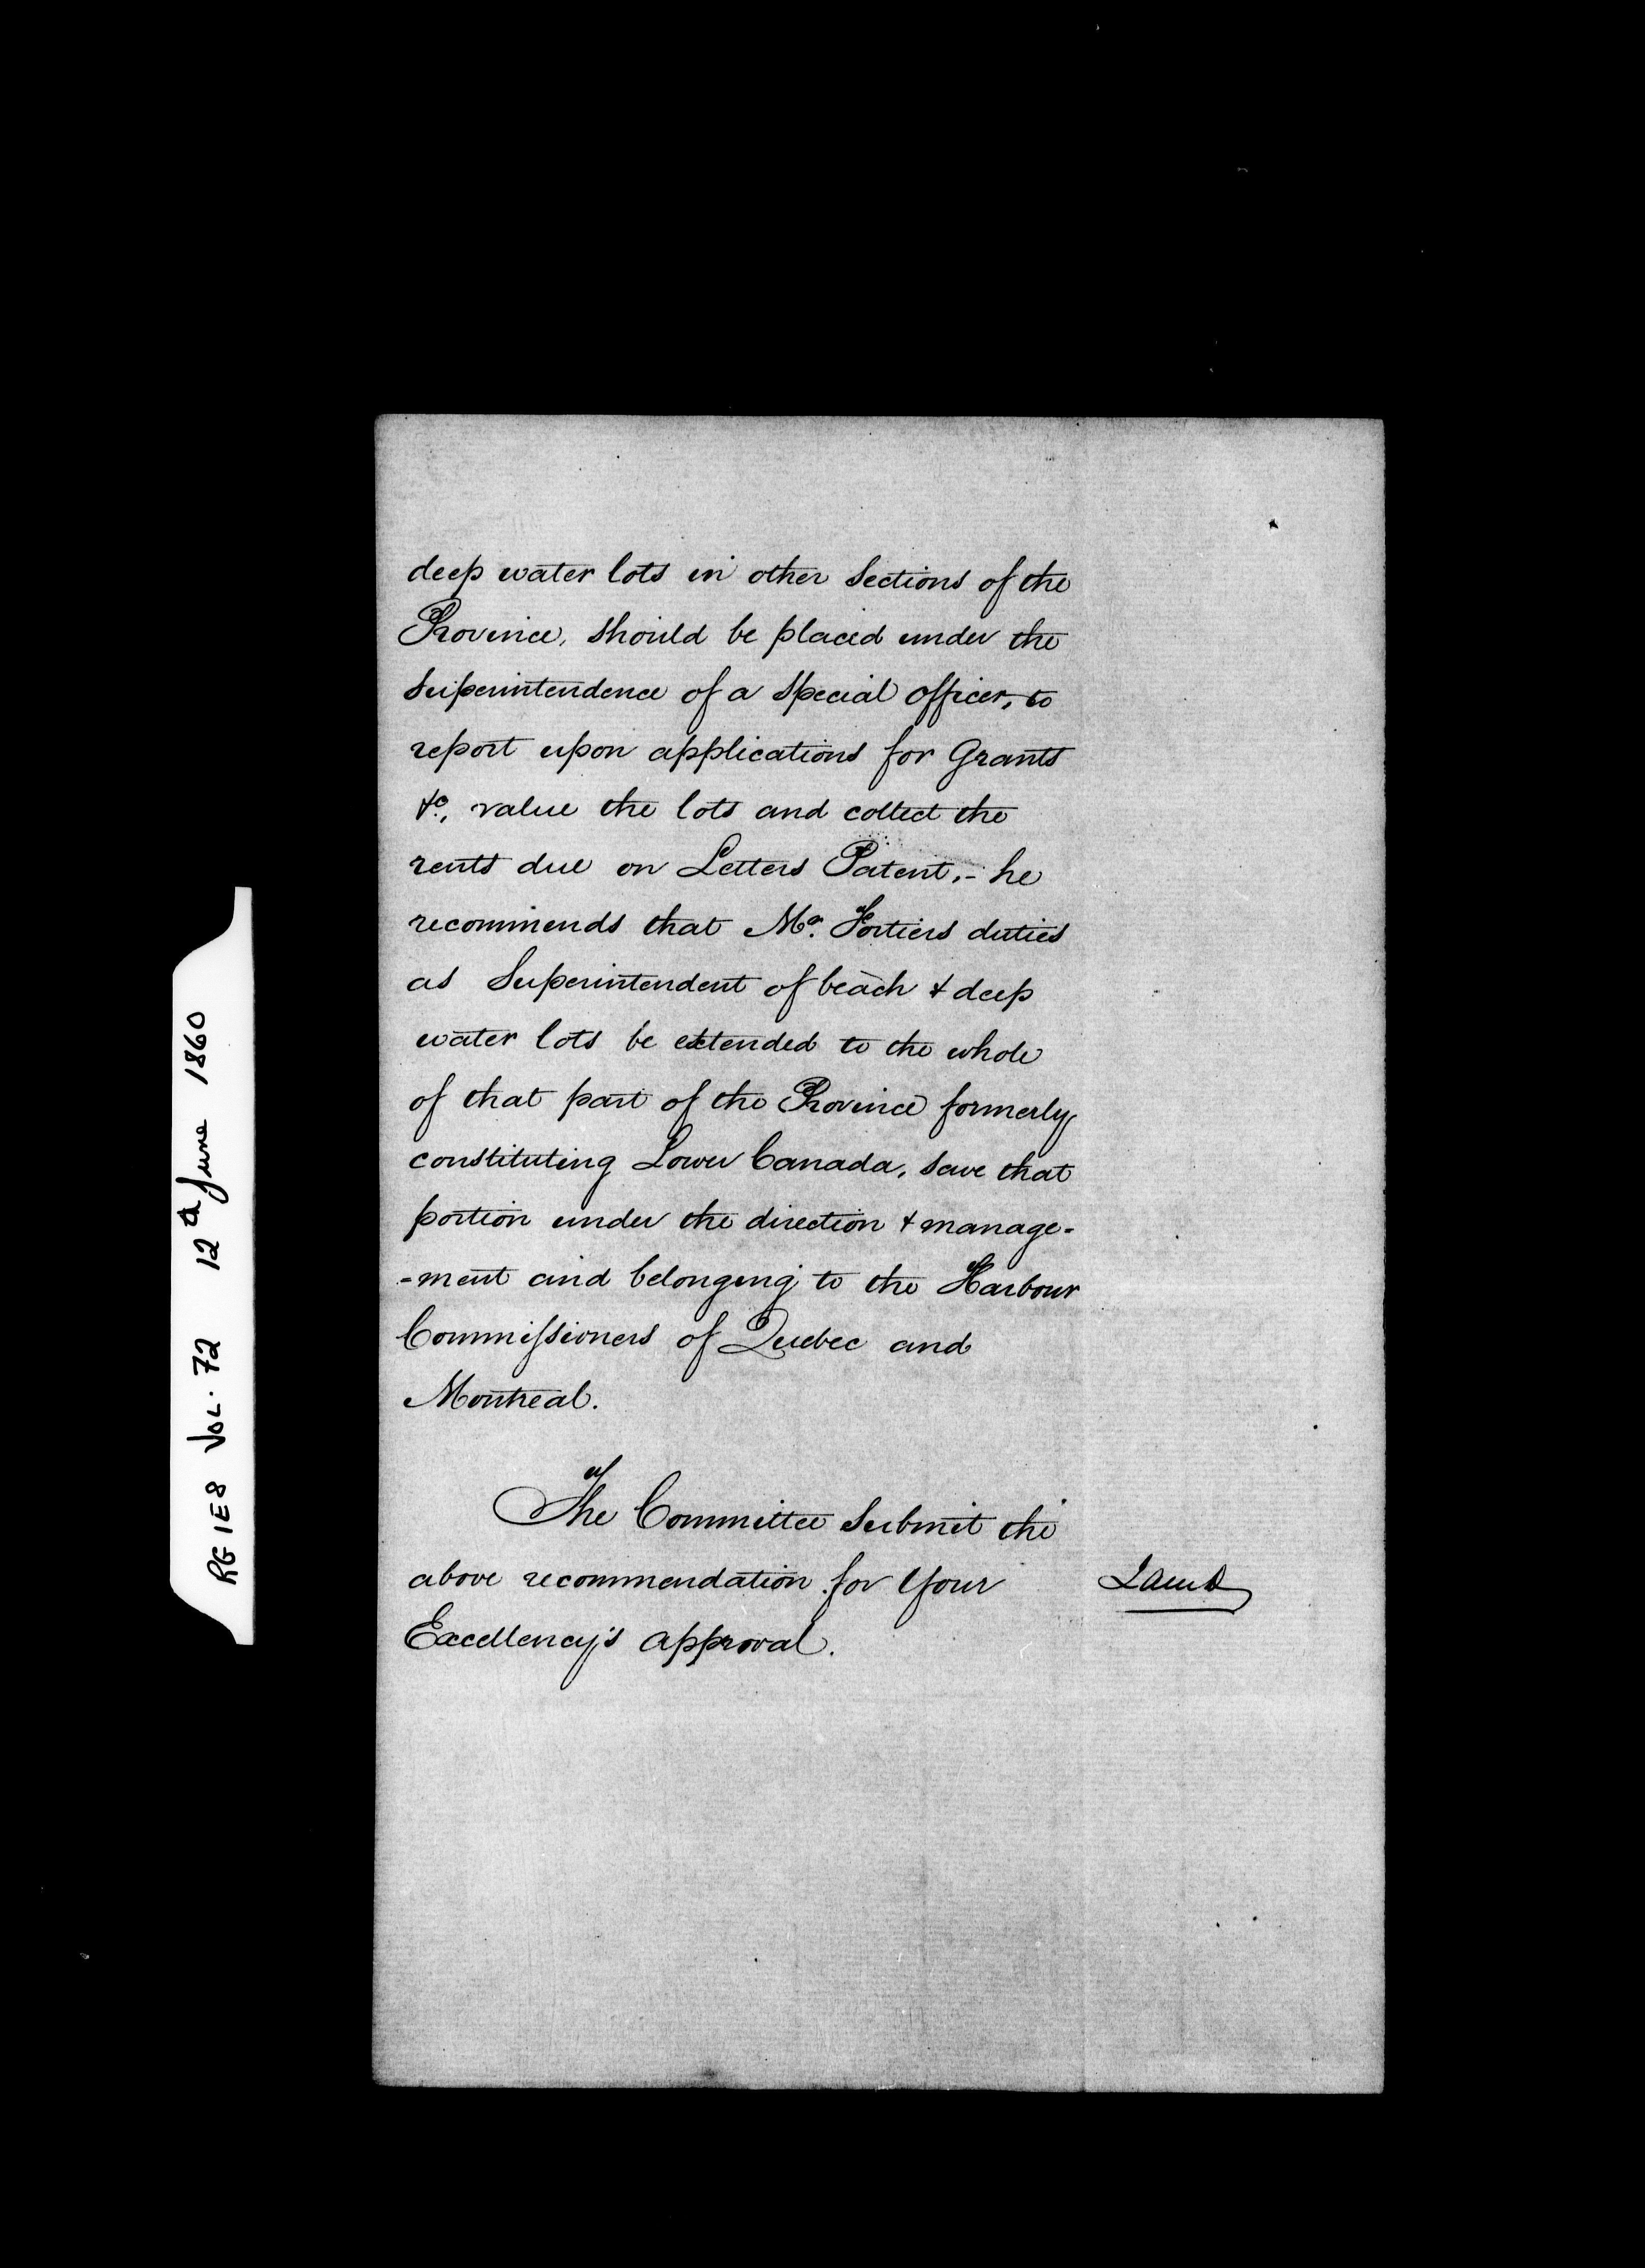 deep water lots in other Sections of the
Province, should be placed under the
Superintendence of a Special Officer, to
report upon applications for Grants
&c., value the lots and collect the
rents due on Letters Patent, - he
recommends that Mr. Fortiers duties
as Superintendent of beach & deep
water lots be extended to the whole
of that part of the Province formerly
constituting Lower Canada, save that
portion under the direction & manage-
-ment and belonging to the Harbour
Commissioners of Quebec and
Montreal.
The Committee Submit the
above recommendation for Your
Excellency's approval.
RG 1E8 VOL. 72 12th June 1860